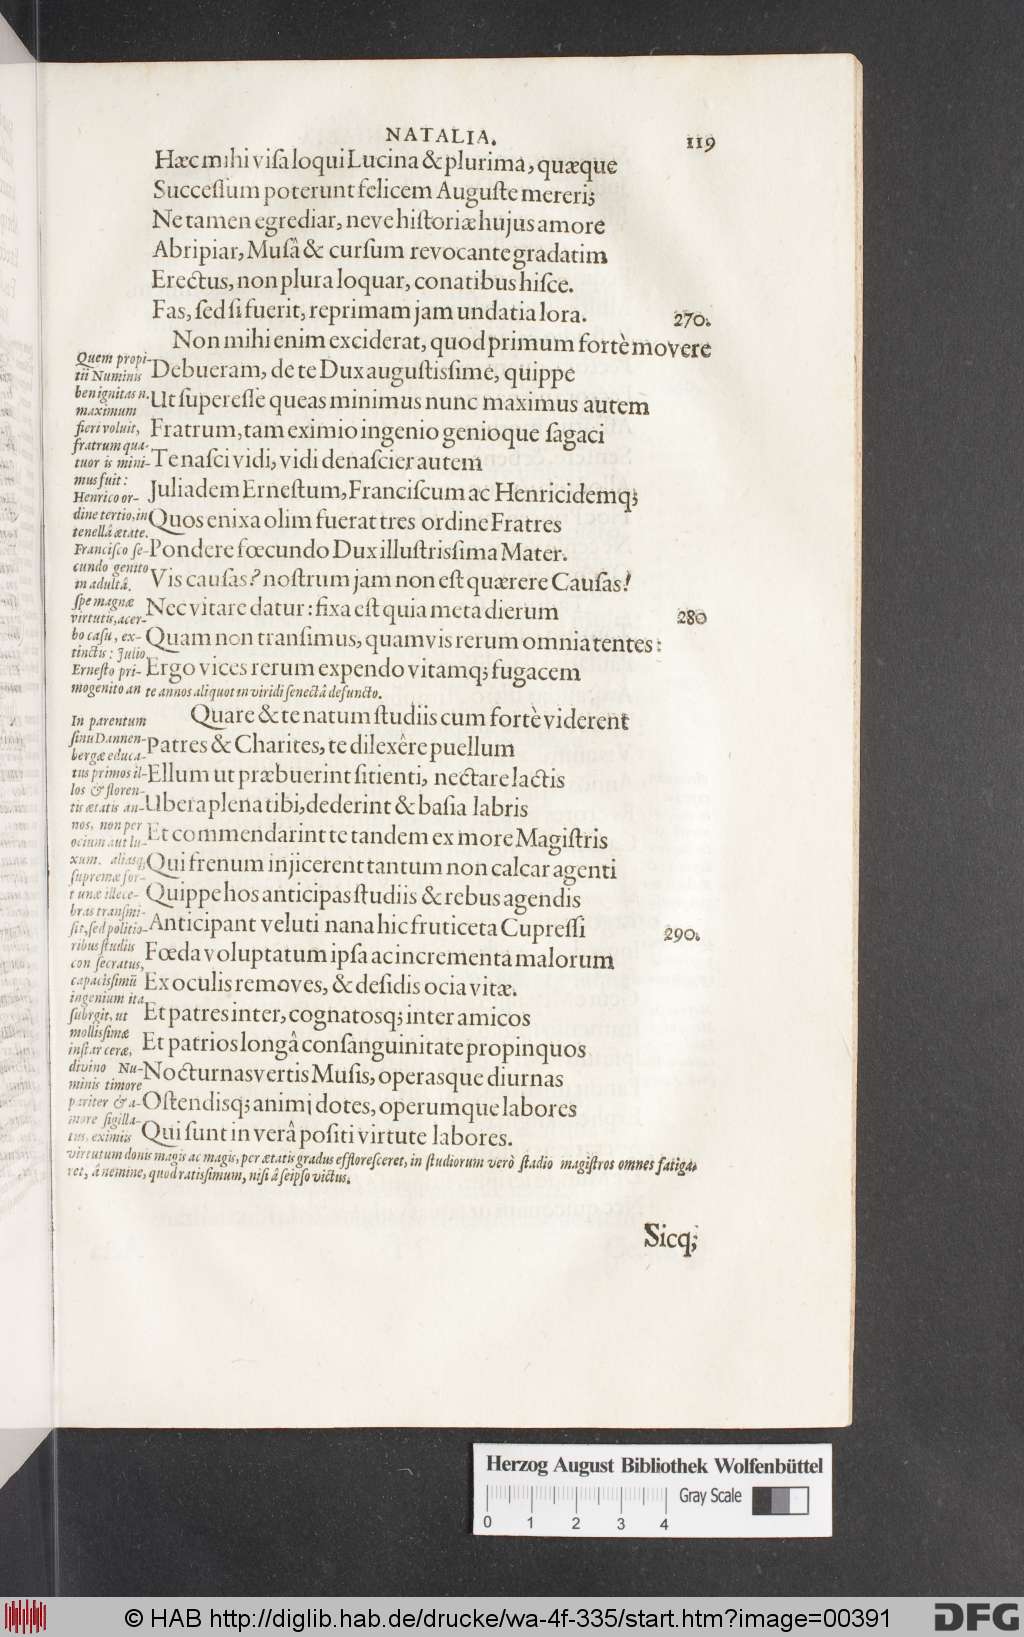 NATALIA. 119
Hæc mihi viſa loqui Lucina & plurima, quæque
Succeſſum poterunt felicem Auguſte mereri;
Ne tamen egrediar, neve hiſtoriæ hujus amore
Abripiar, Muſâ & curſum revocante gradatim
Erectus, non plura loquar, conatibus hiſce.
Fas, ſed ſi fuerit, reprimam jam undatia lora. 270.
Non mihi enim exciderat, quod primum fortè movere
Debueram, de te Dux auguſtiſſime, quippe
Ut ſupereſſe queas minimus nunc maximus autem
Fratrum, tam eximio ingenio genioque ſagaci
Te naſci vidi, vidi denaſcier autem
Juliadem Erneſtum, Franciſcum ac Henricidemq;
Quos enixa olim fuerat tres ordine Fratres
Pondere fœcundo Dux illuſtriſſima Mater.
Vis cauſas? noſtrum jam non eſt quærere Cauſas!
Nec vitare datur: fixa eſt quia meta dierum 280
Quam non tranſimus, quamvis rerum omnia tentes:
Ergo vices rerum expendo vitamq; fugacem
Quem propi-
tii Numinis
benignitas n.
maximum
fieri voluit,
fratrum qua-
tuor is mini-
mus fuit:
Henrico or-
dine tertio, in
tenellâ ætate.
Franciſco ſe-
cundo genito
in adultâ,
ſpe magnæ
virtutis, acer-
bo caſu, ex-
tinctis: Julio
Erneſto pri-
mogenito an te annos aliquot in viridi ſenectâ defuncto.
Quare & te natum ſtudiis cum fortè viderent
Patres & Charites, te dilexêre puellum
Ellum ut præbuerint ſitienti, nectare lactis
Ubera plena tibi, dederint & baſia labris
Et commendarint te tandem ex more Magiſtris
Qui frenum injicerent tantum non calcar agenti
Quippe hos anticipas ſtudiis & rebus agendis
Anticipant veluti nana hic fruticeta Cupreſſi 290.
Fœda voluptatum ipſa ac incrementa malorum
Ex oculis removes, & deſidis ocia vitæ.
Et patres inter, cognatosq; inter amicos
Et patrios longâ conſanguinitate propinquos
Nocturnas vertis Muſis, operasque diurnas
Oſtendisq; animi dotes, operumque labores
Qui ſunt in verâ poſiti virtute labores.
In parentum
ſinu Dannen-
bergæ educa-
tus primos il-
los & floren-
tis ætatis an-
nos, non per
ocium aut lu-
xum, aliasq;
ſupremæ for-
tunæ illece-
bras tranſmi-
ſit, ſed politio-
ribus ſtudiis
conſecratus,
capaciſſimũ
ingenium ita
ſubegit, ut
molliſſimæ
inſtar ceræ,
divino Nu-
minis timore
pariter & a-
more ſigilla-
tus, eximiis
virtutum donis magis ac magis, per ætatis gradus effloreſceret, in ſtudiorum verò ſtadio magiſtros omnes fatiga-
ret, â nemine, quod ratiſſimum, niſi â ſeipſo victus.
Sicq;
Herzog August Bibliothek Wolfenbüttel
Gray Scale
0 1 2 3 4
© HAB http://diglib.hab.de/drucke/wa-4f-335/start.htm?image=00391
DFG